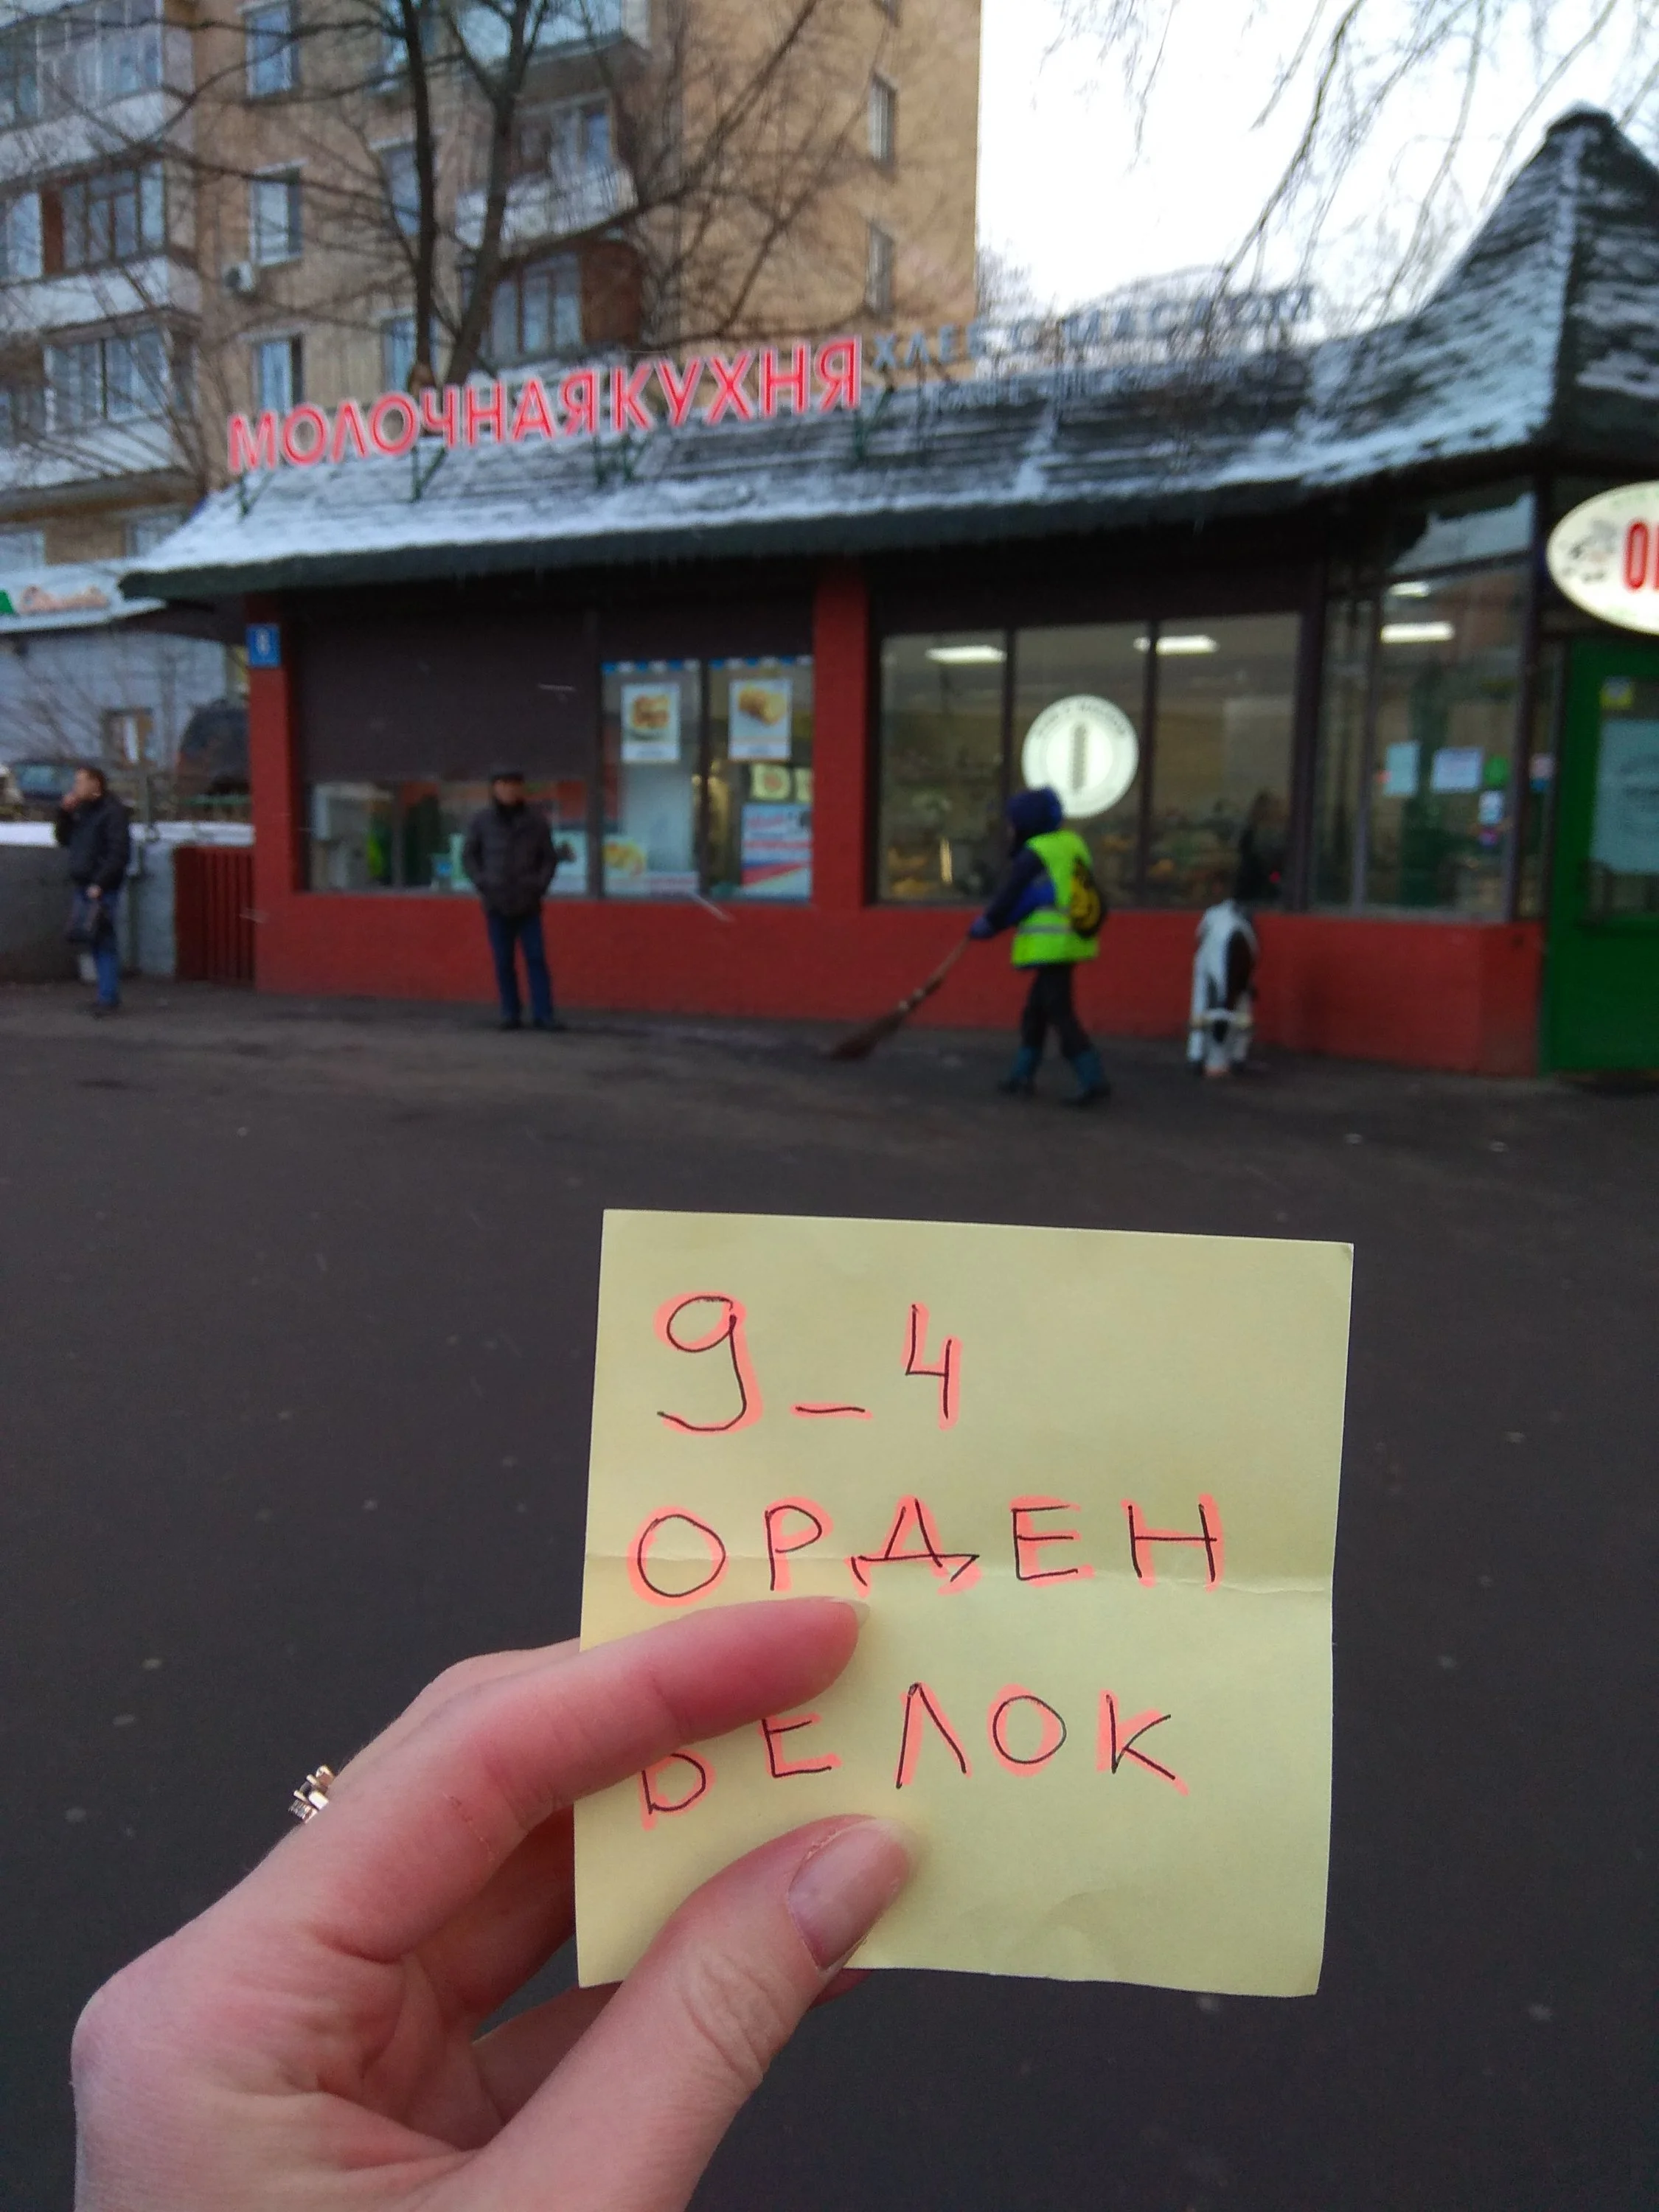 МОЛОЧНАЯ КУХНЯ
ХЛЕБ С МАСЛОМ
9_4
ОРДЕН
БЕЛОК